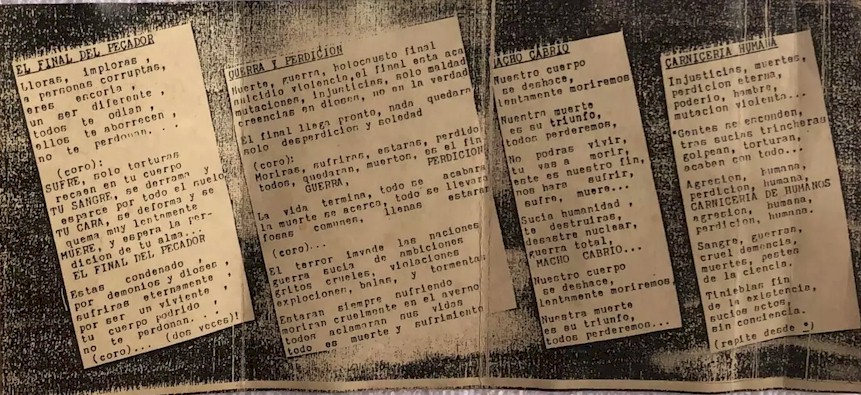 EL FINAL DEL PECADOR
Lloras, imploras ,
a personas corruptas,
eres escoria ,
un ser diferente ,
todos te odian ,
ellos te aborrecen ,
no te perdonan. . .
(coro):
SUFRE, solo torturas
recaen en tu cuerpo
TU SANGRE, se derrama y
esparce por todo el suelo
TU CARA, se deforma y se
quema muy lentamente
MUERE, y espera la per-
dicion de tu alma...
EL FINAL DEL PECADOR
Estas condenado ,
por demonios y dioses ,
sufriras eternamente ,
por ser un viviente ,
tu cuerpo podrido ,
no te perdonan. . .
(coro)... (dos veces)!
GUERRA Y PERDICION
Muerte, guerra, holocausto final
suicidio violencia, el final esta aca
mutaciones, injusticias, solo maldad
creencias en dioses, no en la verdad
El final llega pronto, nada quedara
solo desperdicion y soledad
(coro):
Moriras, sufriras, estaras, perdido
todos, quedaran, muertos, es el fin
GUERRA, PERDICION
La vida termina, todo se acabara
la muerte se acerca, todo se llevara
fosas comunes, llenas estaran
(coro)...
El terror invade las naciones
guerra sucia de ambiciones
gritos crueles, violaciones
explociones, balas, y tormentas
Estaran siempre sufriendo
moriran cruelmente en el averno
todos aclamaran sus vidas
todo es muerte y sufrimiento
MACHO CABRIO
Nuestro cuerpo
se deshace,
lentamente moriremos
Nuestra muerte
es su triunfo,
todos perderemos,
No podras vivir,
tu vas a morir,
este es nuestro fin,
nos hara sufrir,
sufre, muere...
Sucia humanidad ,
te destruiras,
desastre nuclear,
guerra total,
MACHO CABRIO...
Nuestro cuerpo
se deshace,
lentamente moriremos
Nuestra muerte
es su triunfo,
todos perderemos...
CARNICERIA HUMANA
Injusticias, muertes,
perdicion eterna,
poderio, hambre,
mutacion violenta...
*Gentes se esconden,
tras sucias trincheras
golpean, torturan,
acaben con todo...
Agresion, humana,
perdicion, humana,
CARNICERIA DE HUMANOS
agresion, humana,
perdicion, humana.
Sangre, guerras,
cruel demencia,
muertes, pesten
de la ciencia.
Tinieblas fin
de la existencia,
sucios actos,
sin conciencia.
(repite desde *)